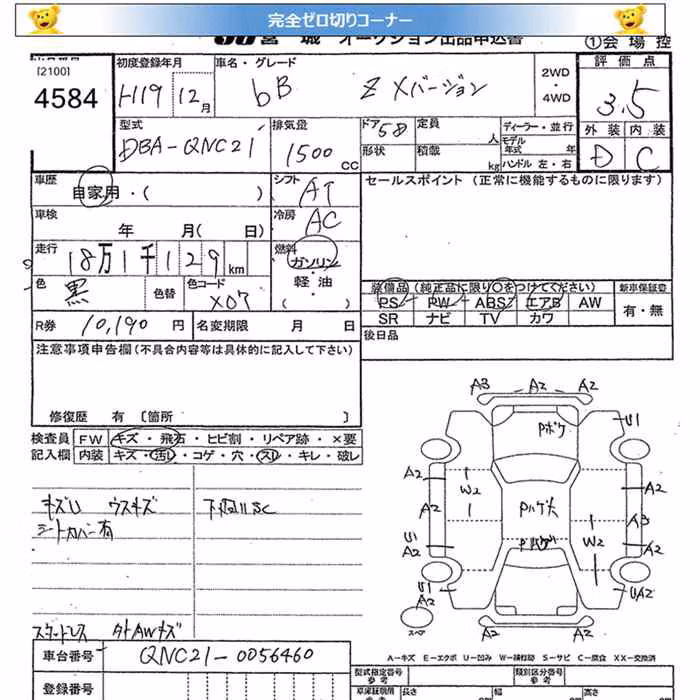 完全ゼロ切りコーナー
JU宮城 オークション出品申込書 ①会場控
[2100]
4584
初度登録年月
H19 12月
車名・グレード
bB Z Xバージョン
2WD・4WD
評価点
3.5
外装 内装
D C
型式
DBA-QNC21
排気量
1500 CC
ドア 5B
形状
定員 人
積載 kg
ディーラー・並行
モデル年式 年
ハンドル 左・右
車歴
自家用・( )
シフト AT
セールスポイント (正常に機能するものに限ります)
車検
年 月( 日)
冷房 AC
走行
18万1千129km
燃料
ガソリン
軽油
( )
色 黒
色替
色コード X07
装備品 (純正品に限り○をつけてください)
新車保証書
PS PW ABS エアB AW
SR ナビ TV カワ
有・無
R券 10,190 円
名変期限 月 日
後日品
注意事項申告欄(不具合内容等は具体的に記入して下さい)
修復歴 有 [箇所 ]
検査員 FW キズ・飛石・ヒビ割・リペア跡・×要
記入欄 内装 キズ・汚れ・コゲ・穴・スレ・キレ・破レ
キズU ウスキズ
シートカバー有
下廻りSC
スタートレス タイAWキズ
A3 A2 A2
Pボケ
U1
A2 W2 A2
A2 Pハゲ大 A3
U1 A2 Pハゲ W2 A2
U1 A2 UA2
A2 A2 A2
スペア
A-キズ E-エクボ U-凹み W-補修跡 S-サビ C-腐食 XX-交換済
車台番号 QNC21-0056460
登録番号
型式指定番号 参考
類別区分番号 参考
長さ
幅
高さ